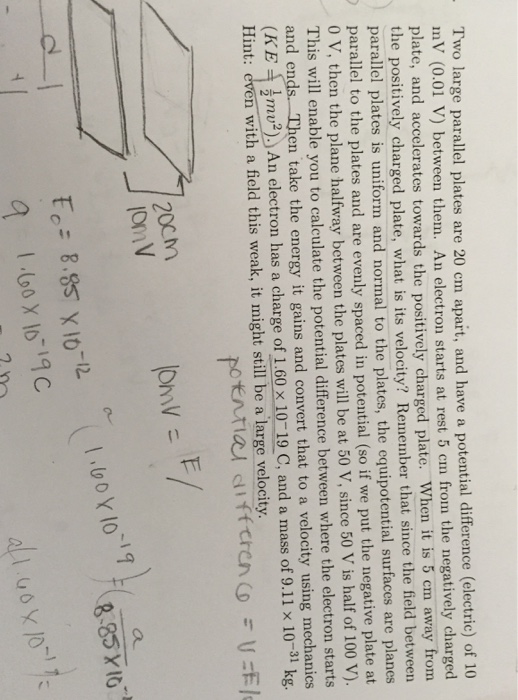 Two large parallel plates are 20 cm apart, and have a potential difference (electric) of 10
mV (0.01 V) between them. An electron starts at rest 5 cm from the negatively charged
plate, and accelerates towards the positively charged plate. When it is 5 cm away from
the positively charged plate, what is its velocity? Remember that since the field between
parallel plates is uniform and normal to the plates, the equipotential surfaces are planes
parallel to the plates and are evenly spaced in potential (so if we put the negative plate at
0 V, then the plane halfway between the plates will be at 50 V, since 50 V is half of 100 V).
This will enable you to calculate the potential difference between where the electron starts
and ends. Then take the energy it gains and convert that to a velocity using mechanics
(KE = ½mv²). An electron has a charge of 1.60 × 10−19 C, and a mass of 9.11 × 10⁻³¹ kg.
Hint: even with a field this weak, it might still be a large velocity.
potential difference = V = E/
20cm
10mV
10mV = E/
E₀ = 8.85 × 10⁻¹²
q 1.60 × 10⁻¹⁹ C